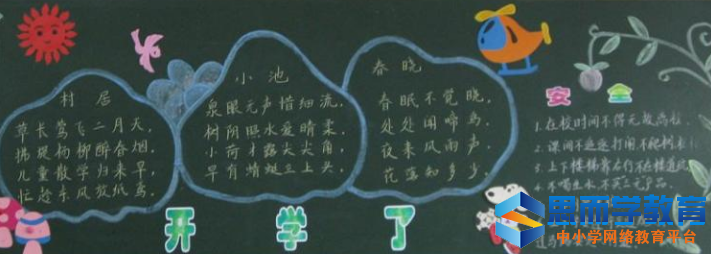 村居
草长莺飞二月天,
拂堤杨柳醉春烟,
儿童散学归来早,
忙趁东风放纸鸢。
小池
泉眼无声惜细流,
树阴照水爱晴柔,
小荷才露尖尖角,
早有蜻蜓立上头。
春晓
春眠不觉晓,
处处闻啼鸟,
夜来风雨声,
花落知多少。
安全
1.在校时间不得无故离校。
2.课间不追逐打闹,不爬树
3.上下楼梯靠右行,不在楼道
4.不喝生水,不买三无产品。
开学了
思而学教育
中小学网络教育平台